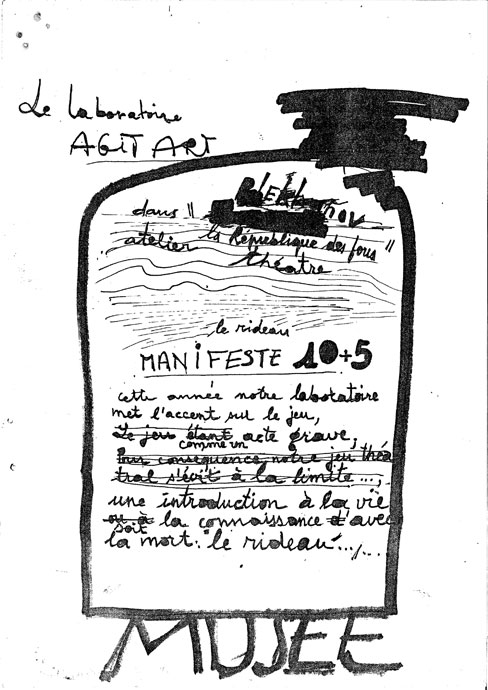 Le laboratoire
AGIT ART
PLEKHANOV
dans "
la République des fous"
atelier
théatre
le rideau
MANIFESTE 10+5
cette année notre laboratoire
met l'accent sur le jeu,
Le jeu étant acte grave,
comme un
Pour conséquence notre jeu théa
tral s'écrit à la limite ...,
une introduction à la vie
ou à la connaissance d'avec
soit
la mort: "le rideau" .../...
MUSEE